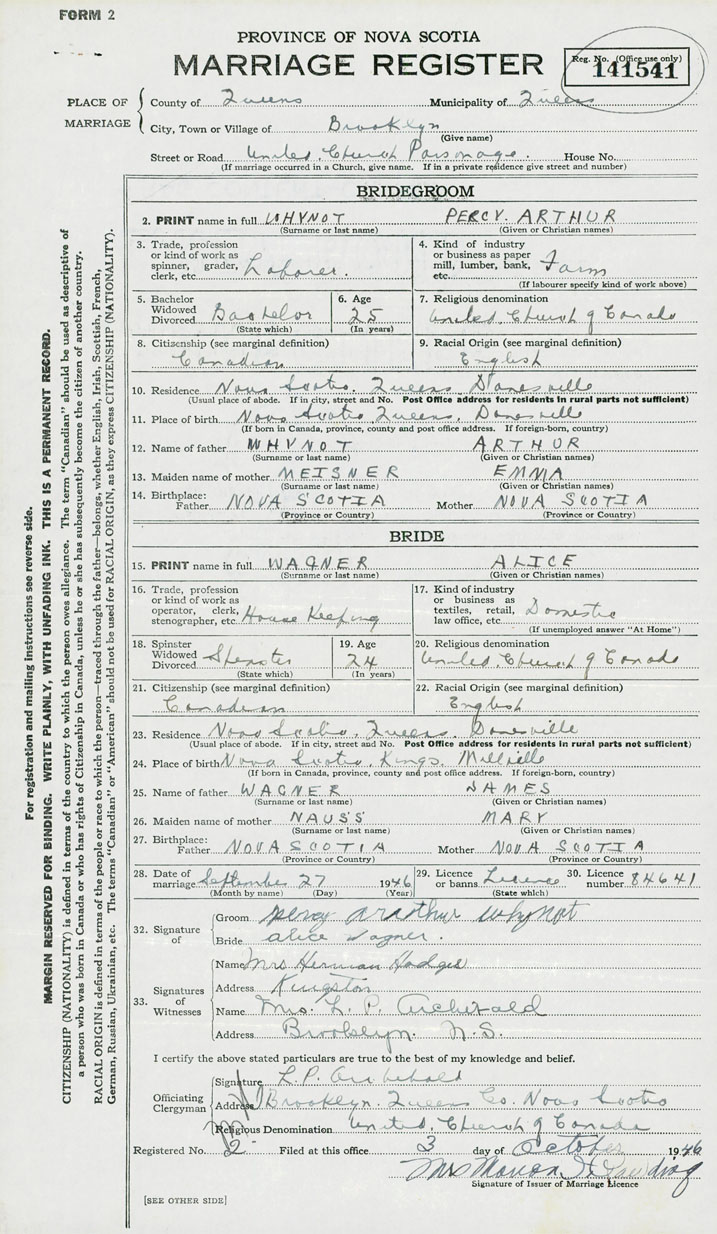 FORM 2
PROVINCE OF NOVA SCOTIA
MARRIAGE REGISTER
Reg. No. (Office use only)
141541
PLACE OF MARRIAGE
County of Queens Municipality of Queens
City, Town or Village of Brooklyn
(Give name)
Street or Road United Church Parsonage. House No.
(If marriage occurred in a Church, give name. If in a private residence give street and number)
BRIDEGROOM
2. PRINT name in full WHYNOT PERCY. ARTHUR
(Surname or last name) (Given or Christian names)
3. Trade, profession or kind of work as spinner, grader, clerk, etc. Laborer.
4. Kind of industry or business as paper mill, lumber, bank, etc. Farm
(If labourer specify kind of work above)
5. Bachelor Widowed Divorced Bachelor
(State which)
6. Age 25
(In years)
7. Religious denomination
United Church of Canada
8. Citizenship (see marginal definition)
Canadian
9. Racial Origin (see marginal definition)
English
10. Residence Nova Scotia. Queens Danesville
(Usual place of abode. If in city, street and No. Post Office address for residents in rural parts not sufficient)
11. Place of birth Nova Scotia Queens. Danesville
(If born in Canada, province, county and post office address. If foreign-born, country)
12. Name of father WHYNOT ARTHUR
(Surname or last name) (Given or Christian names)
13. Maiden name of mother MEISNER EMMA
(Surname or last name) (Given or Christian names)
14. Birthplace: Father NOVA SCOTIA Mother NOVA SCOTIA
(Province or Country) (Province or Country)
BRIDE
15. PRINT name in full WAGNER ALICE
(Surname or last name) (Given or Christian names)
16. Trade, profession or kind of work as operator, clerk, stenographer, etc. House Keeping
17. Kind of industry or business as textiles, retail, law office, etc. Domestic
(If unemployed answer "At Home")
18. Spinster Widowed Divorced Spinster
(State which)
19. Age 24
(In years)
20. Religious denomination
United Church of Canada
21. Citizenship (see marginal definition)
Canadian
22. Racial Origin (see marginal definition)
English
23. Residence Nova Scotia. Queens Danesville
(Usual place of abode. If in city, street and No. Post Office address for residents in rural parts not sufficient)
24. Place of birth Nova Scotia. Kings. Millville
(If born in Canada, province, county and post office address. If foreign-born, country)
25. Name of father WAGNER JAMES
(Surname or last name) (Given or Christian names)
26. Maiden name of mother NAUSS MARY
(Surname or last name) (Given or Christian names)
27. Birthplace: Father NOVA SCOTIA Mother NOVA SCOTIA
(Province or Country) (Province or Country)
28. Date of marriage September 27 1946
(Month by name) (Day) (Year)
29. Licence or banns Licence
(State which)
30. Licence number 84641
32. Signature of
Groom percy ararthur whynot
Bride alice wagner.
33. Signatures of Witnesses
Name Mrs Herman Hodges
Address Kingston
Name Mrs. L. P. Archibald
Address Brooklyn. N.S.
I certify the above stated particulars are true to the best of my knowledge and belief.
Officiating Clergyman
Signature L.P. Archibald
Address Brooklyn. Queens Co. Nova Scotia
Religious Denomination United Church of Canada
Registered No. 2 Filed at this office 3 day of October 1946
Mrs Marion
Signature of Issuer of Marriage Licence
[SEE OTHER SIDE]
For registration and mailing instructions see reverse side.
MARGIN RESERVED FOR BINDING. WRITE PLAINLY, WITH UNFADING INK. THIS IS A PERMANENT RECORD.
CITIZENSHIP (NATIONALITY) is defined in terms of the country to which the person owes allegiance. The term "Canadian" should be used as descriptive of
a person who was born in Canada or who has rights of Citizenship in Canada, unless he or she has subsequently become the citizen of another country.
RACIAL ORIGIN is defined in terms of the people or race to which the person—traced through the father—belongs, whether English, Irish, Scottish, French,
German, Russian, Ukrainian, etc. The terms "Canadian" or "American" should not be used for RACIAL ORIGIN, as they express CITIZENSHIP (NATIONALITY).